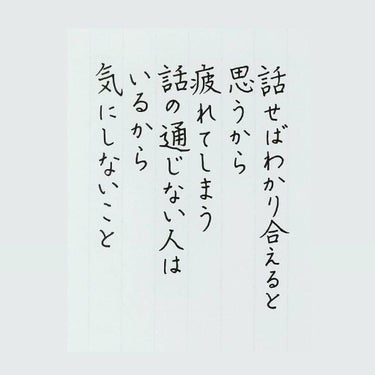 話せばわかり合えると
思うから
疲れてしまう
話の通じない人は
いるから
気にしないこと